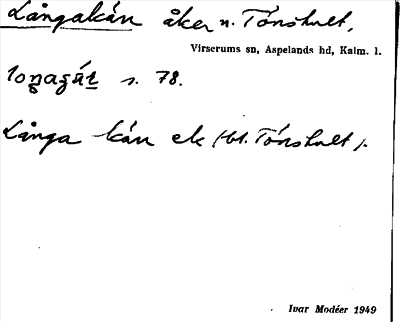 Långakán åker n. Tönshult,
Virserums sn, Aspelands hd, Kalm. l.
s. 78.
Långa kán ek (bl. Tönshult).
Ivar Modéer 1949